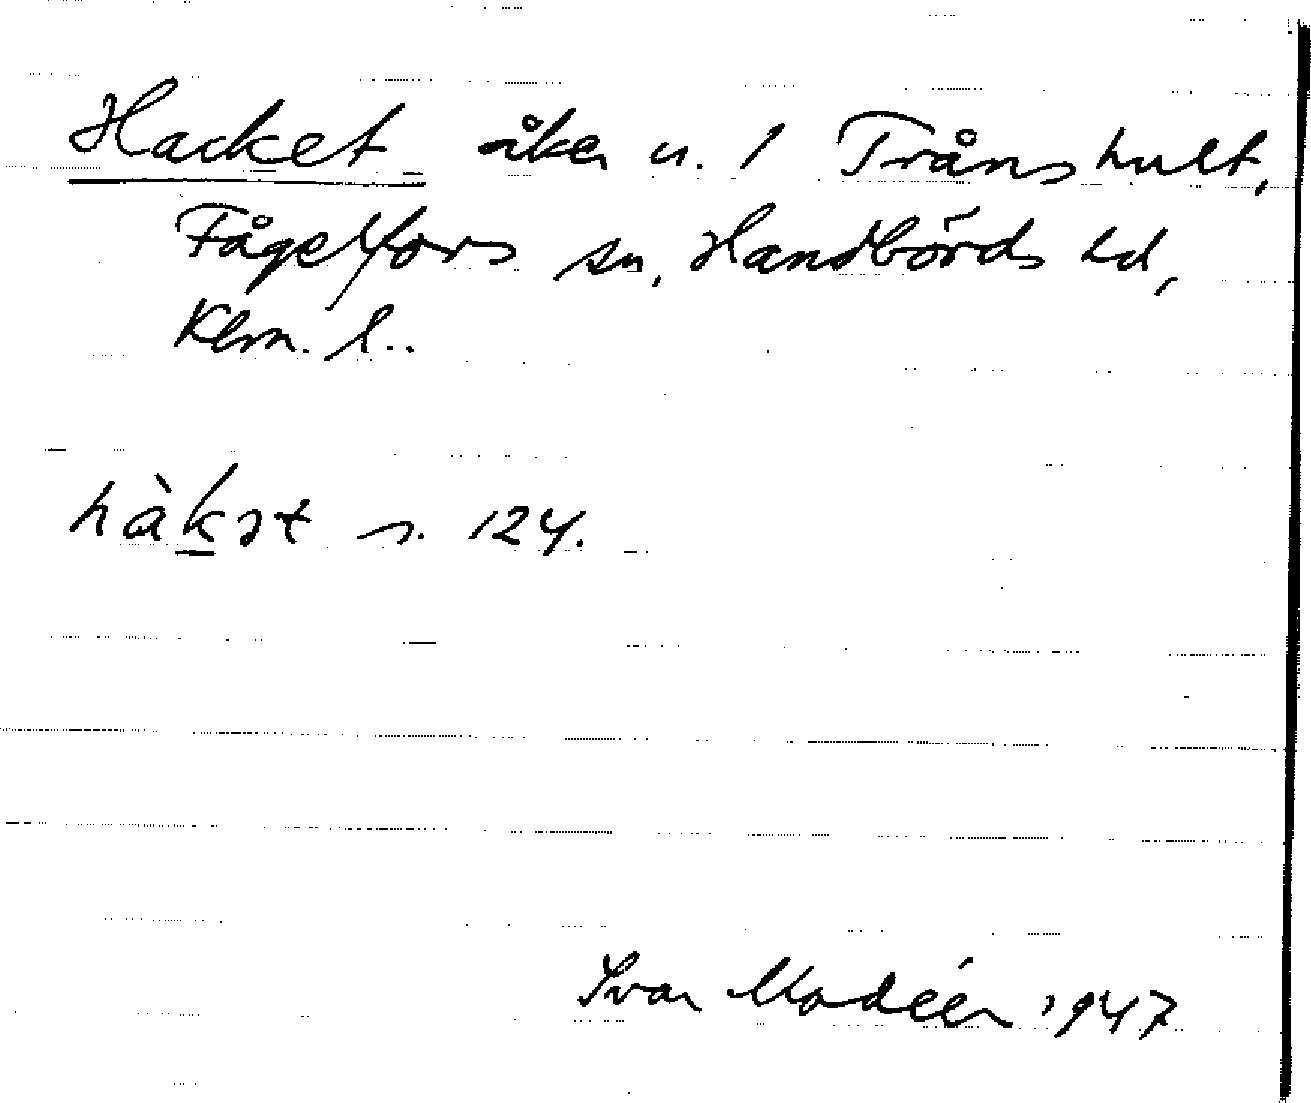 Hacket åker n. 1 Trånshult,
Fågelfors sn, Handbörds hd,
Klm. l..
hàkət s. 124.
Ivar Modéer 1947